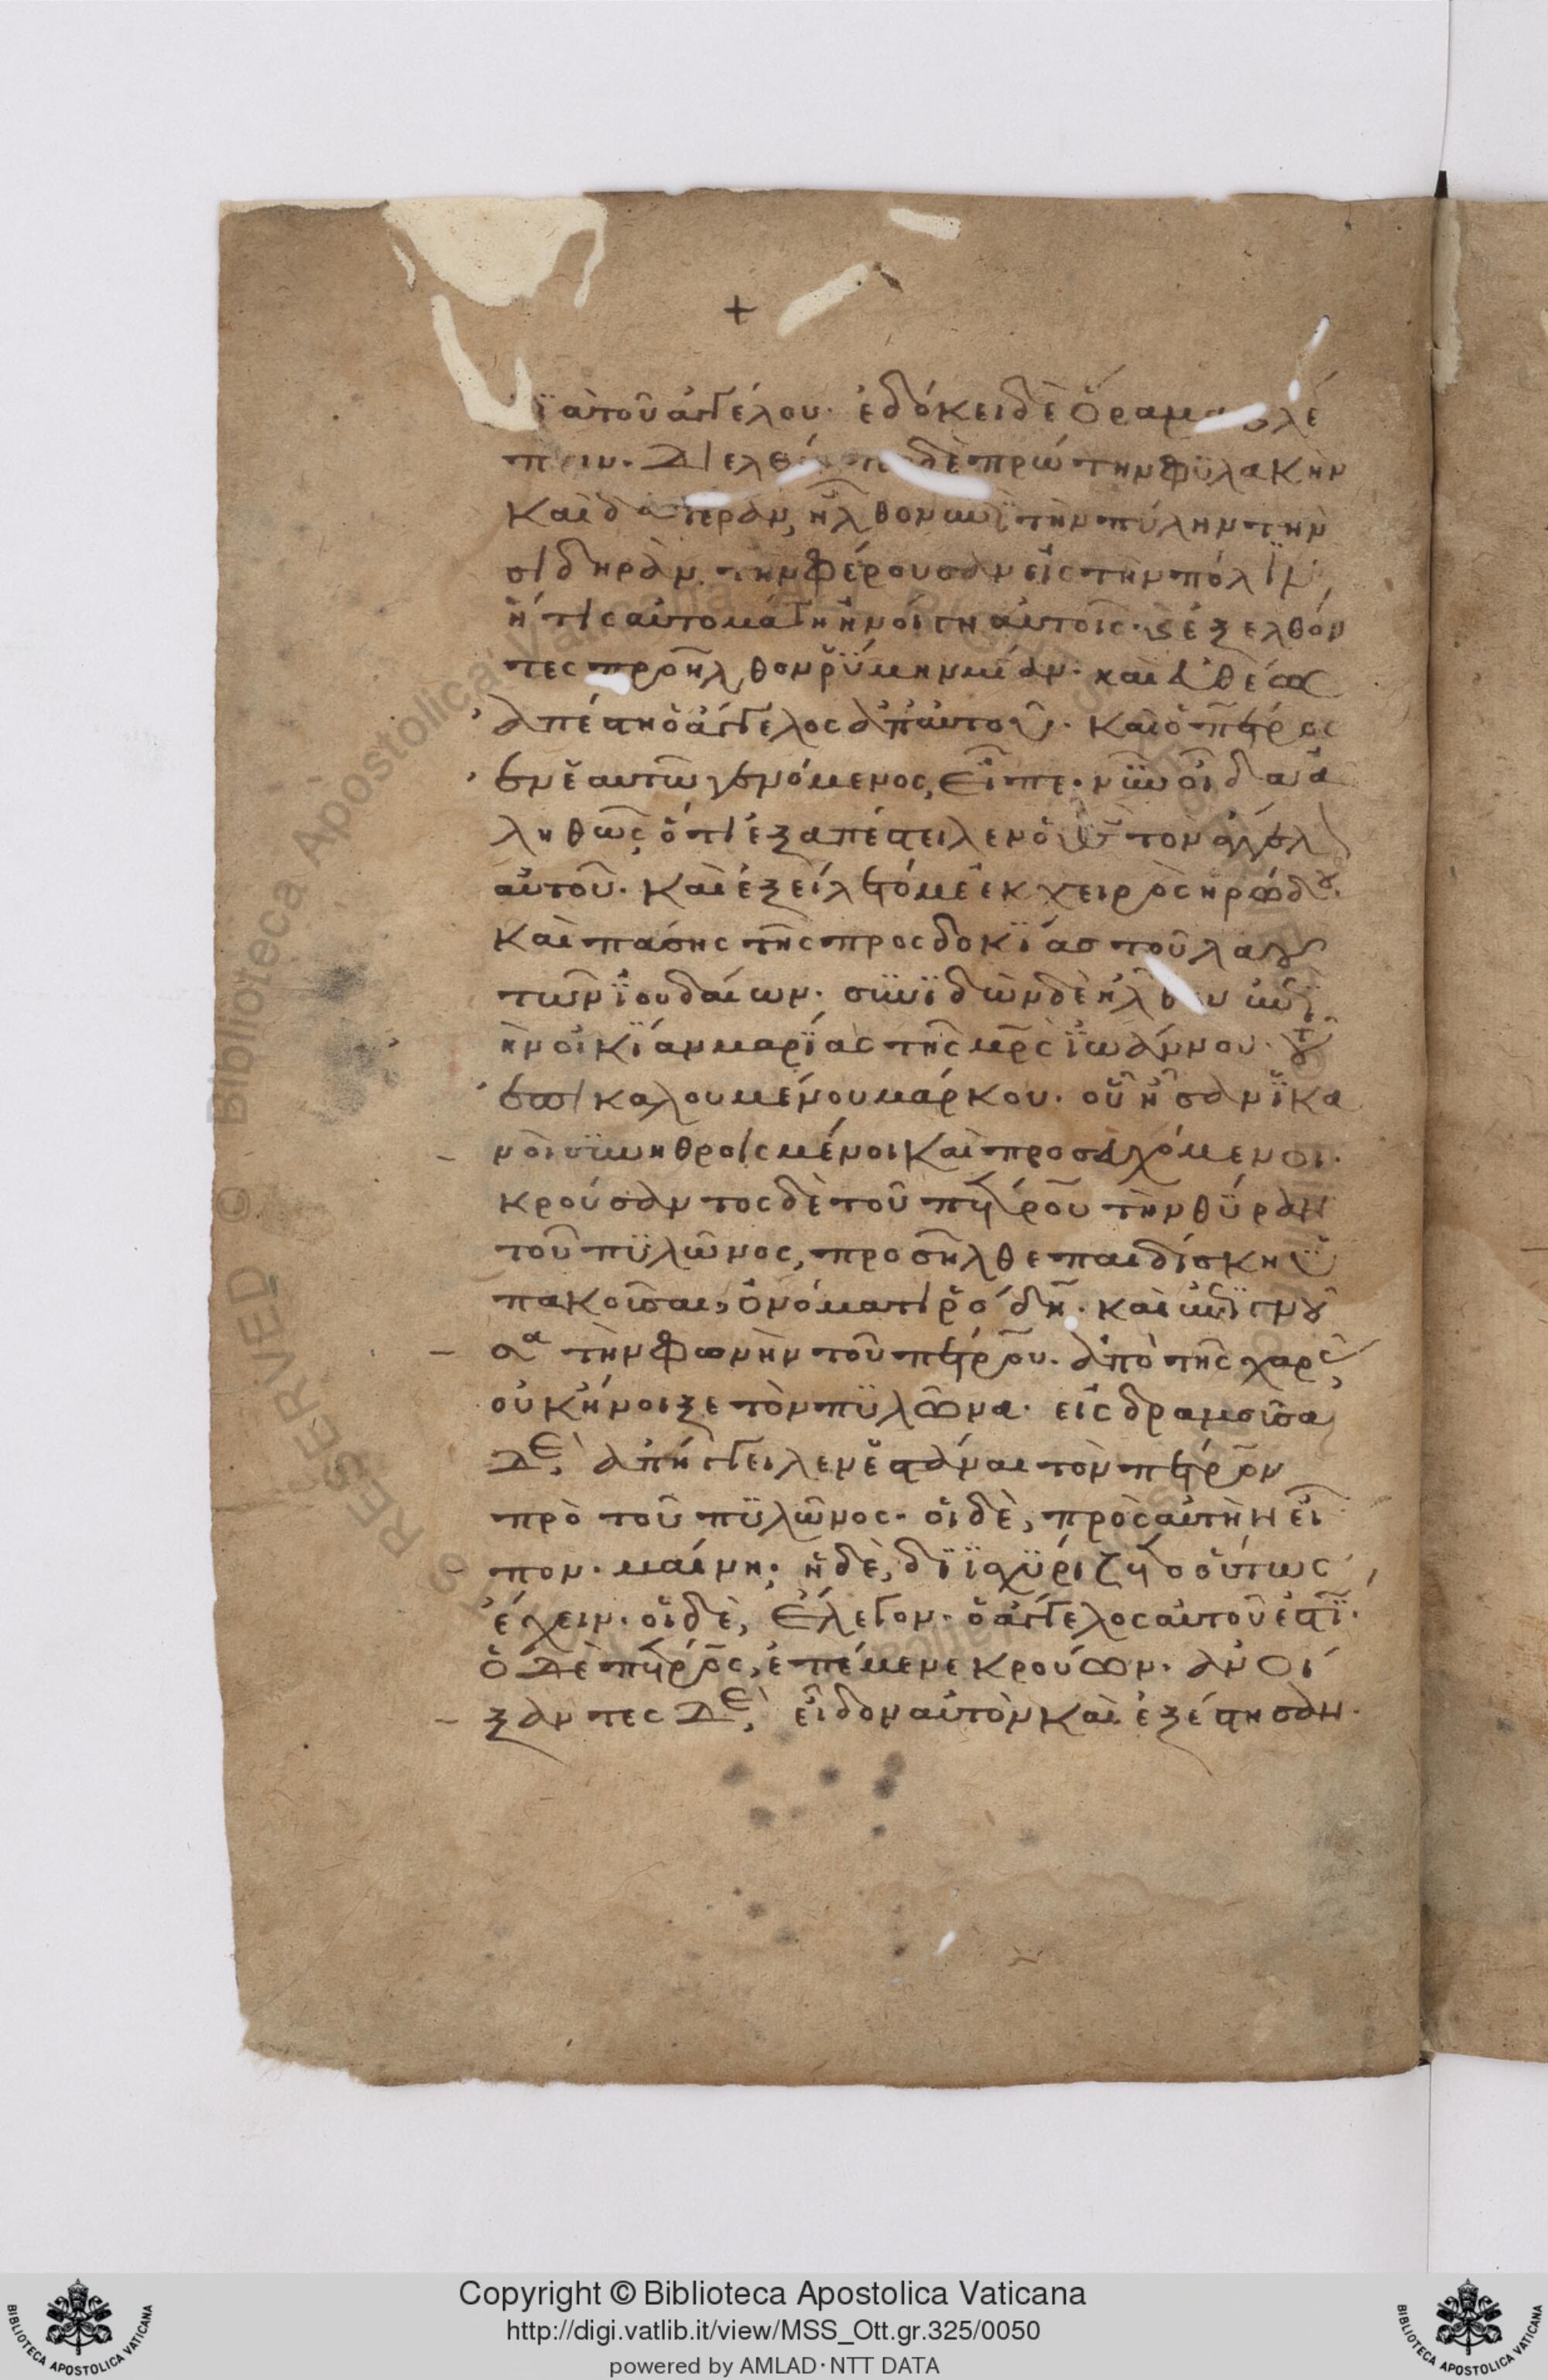 +
ϊα τοῦ ἀγγέλου· ἐδόκει δὲ ὅραμα βλέ
πειν· διελθόντες δὲ πρώτην φϋλακὴν
καὶ δευτέραν, ἦλθον ἐπῒ τὴν πύλην τὴν
σιδηρὰν τὴν φέρουσαν εἰς τὴν πόλϊν,
ἥτις αὐτομάτη ἠνοίγη αὐτοῖς· καὶ ἐξελθόν
τες προῆλθον ῥϋμην μίαν· καὶ εὐθέως
ἀπέστη ὁ ἄγγελος ἀπ' αὐτοῦ· καὶ ὁ πέτρος
ἐν ἑαυτῶ γενόμενος, εἶπε· νῦν οἶδα ἀ
ληθῶς ὅτι ἐξαπέστειλεν ὁ θς τὸν ἄγγελ
αὐτοῦ· καὶ ἐξείλετό με ἐκ χειρὸς ἡρώδου
καὶ πάσης τῆς προσδοκϊας τοῦ λαοῦ
τῶν ϊουδαίων· συνϊδὼν δὲ ἦλθεν ἐπῒ
ὴν οἰκϊαν μαρϊας τῆς μρς ϊωάννου· τοῦ
ἐπικαλουμένου μάρκου· οὗ ἦσαν ϊκα
νοὶ συνηθροισμένοι καὶ προσευχόμενοι·
κρούσαντος δὲ τοῦ πέτρου τὴν θϋραν
τοῦ πϋλῶνος, προσῆλθε παιδίσκη ὑ
πακοῦσαι, ὀνόματι ῥόδη· καὶ ἐπϊγνοῦ
σα τὴν φωνὴν τοῦ πέτρου· ἀπὸ τῆς χαρᾶς
οὐκ ἤνοιξε τὸν πϋλῶνα· εἰσδραμοῦσα
δὲ, ἀπήγγειλεν ἑστάναι τὸν πέτρον
πρὸ τοῦ πϋλῶνος· οἱ δὲ, πρὸς αὐτὴν εἶ
πον· μαίνη· ἡ δὲ, δϊϊσχϋρίζετο οὕτως
ἔχειν· οἱ δὲ, ἔλεγον· ὁ ἄγγελος αὐτοῦ ἐστϊ·
ὁ δὲ πέτρος, ἐπέμενε κρούων· ἀνοί
ξαντες δὲ, εἶδον αὐτὸν καὶ ἐξέστησαν·
Copyright © Biblioteca Apostolica Vaticana
http://digi.vatlib.it/view/MSS_Ott.gr.325/0050
powered by AMLAD·NTT DATA